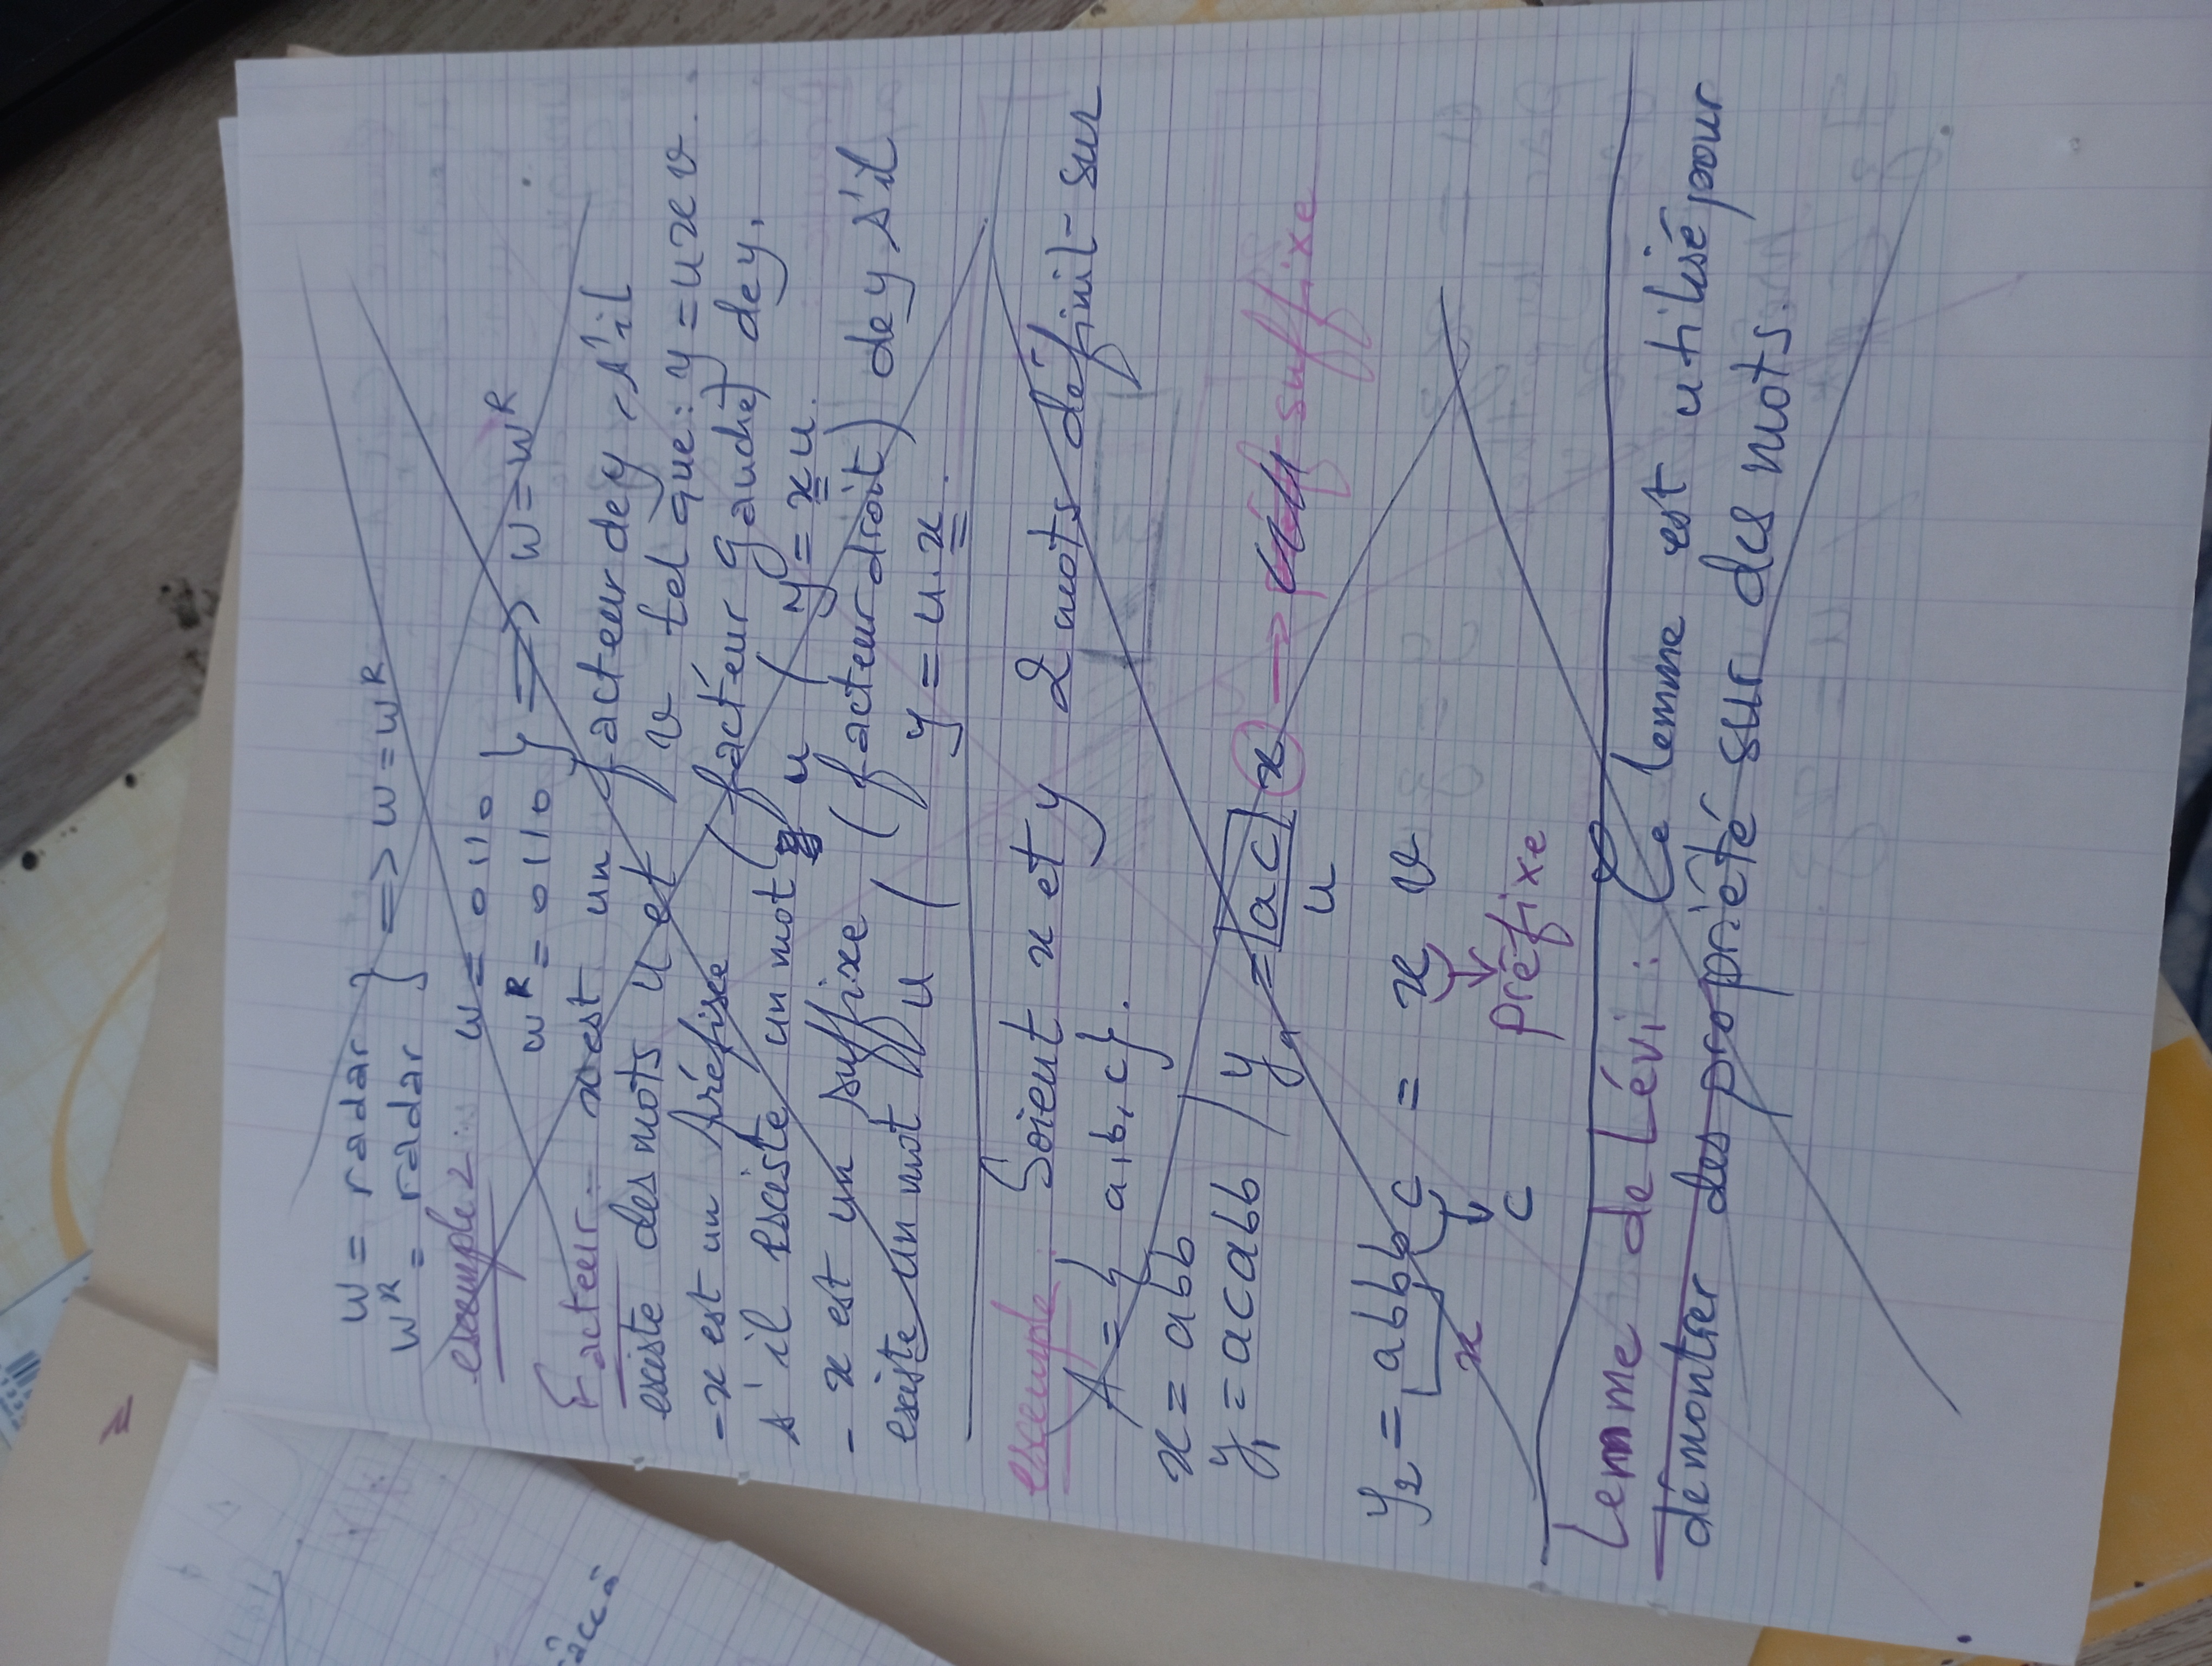 w = radar
w^R = radar } => w = w^R
exemple 2 : w = 0110
w^R = 0110 } => w = w^R
Facteur - x est un facteur de y, s'il
existe des mots u et v tel que : y = u x v.
- x est un Préfixe (facteur gauche) de y,
s'il existe un mot u / y = x u.
- x est un suffixe (facteur droit) de y s'il
existe un mot u / y = u . x .
exemple : Soient x et y 2 mots définit sur
A = { a, b, c}.
x = abb
y₁ = acabb / y₁ = ac x → suffixe
u
y₂ = abbbc = x v
x
c préfixe
Lemme de Lévi : Ce lemme est utilisé pour
démontrer des propriété sur des mots.